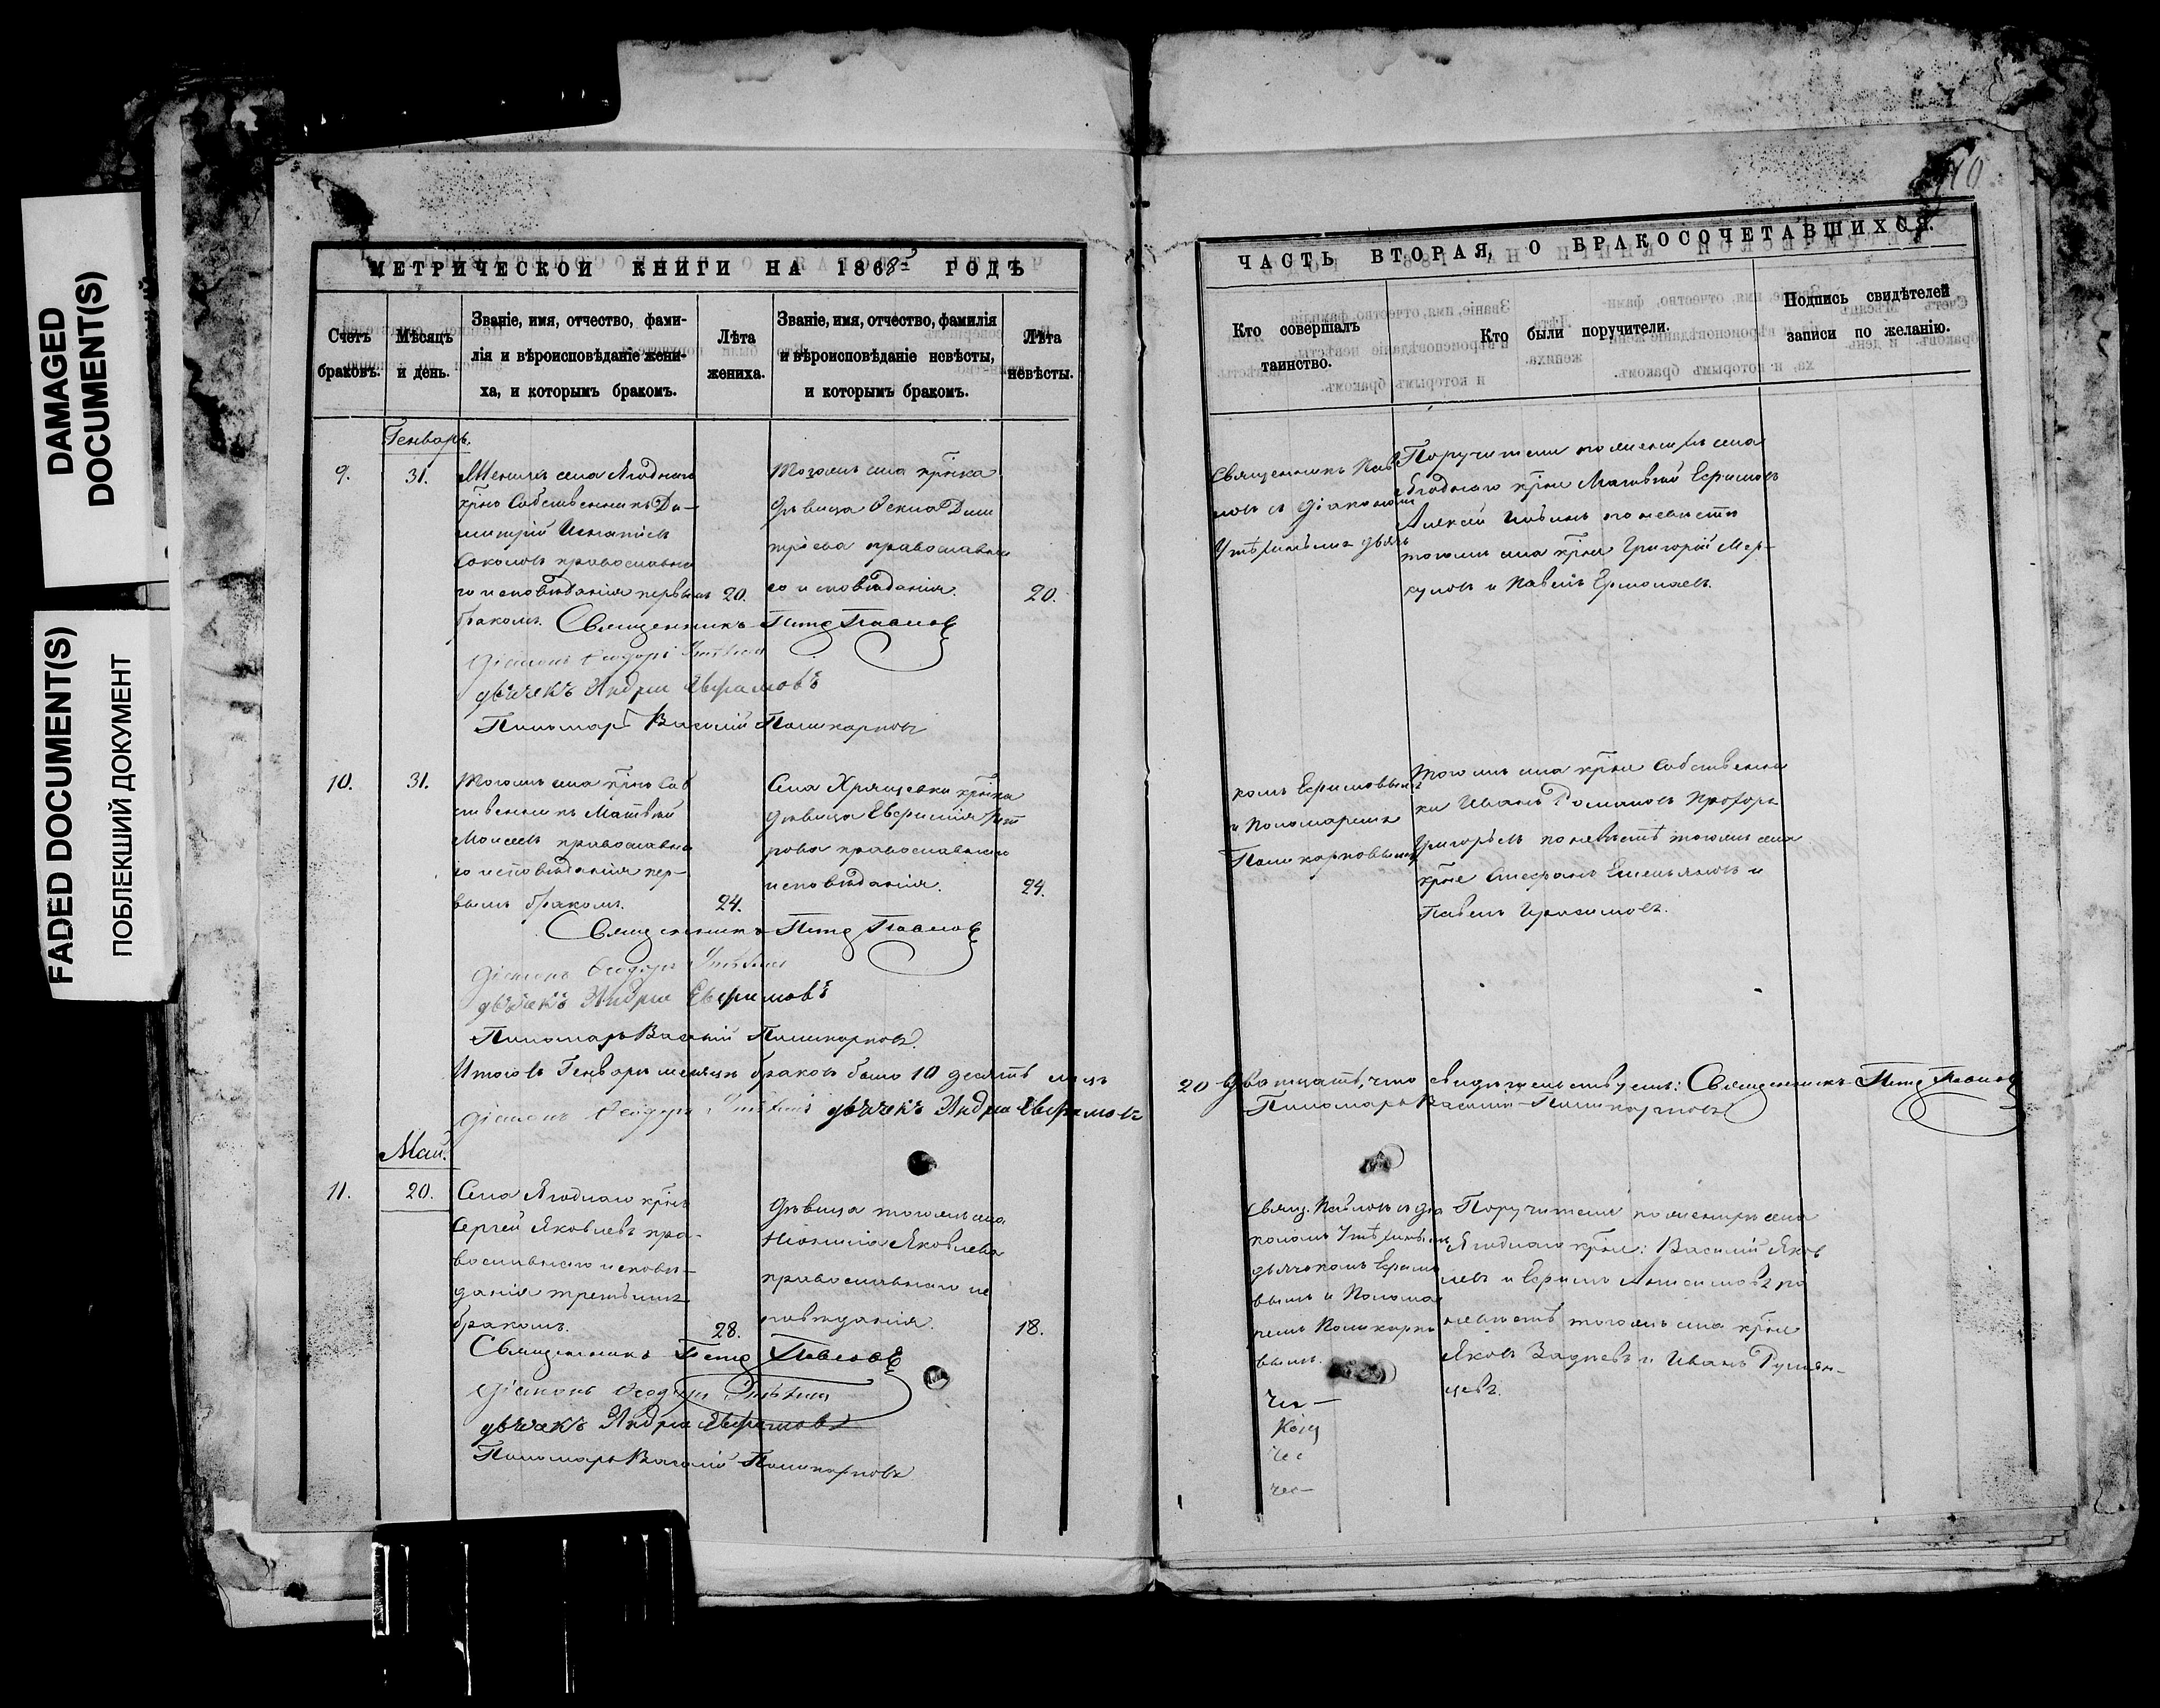 DAMAGED
DOCUMENT(S)
FADED DOCUMENT(S)
ПОБЛЕКШИЙ ДОКУМЕНТ
МЕТРИЧЕСКОЙ КНИГИ НА 1868 ГОДЪ
Счетъ
браковъ.
Мѣсяцъ
и день.
Званіе, имя, отчество, фами-
лія и вѣроисповѣданіе жени-
ха, и которымъ бракомъ.
Лѣта
жениха.
Званіе, имя, отчество, фамилія
и вѣроисповѣданіе невѣсты,
и которымъ бракомъ.
Лѣта
невѣсты.
Генварь.
9.
31.
Женихъ села Ягоднаго
Собственникъ Ди-
митрій Игнатіевъ
Соколовъ православна
го исповѣданія первымъ
бракомъ.
20.
Тогожъ села
дѣвица Ѳекла Дми
тріева православна
го исповѣданія.
20.
Священникъ Петръ Павловъ
Діаконъ Ѳеодоръ
дьячекъ Андрей Ефимовъ
Пономарь Василій Поликарповъ
10.
31.
Тогожъ села Соб
ственникъ Матвѣй
Моисеевъ православна
го исповѣданія пер-
вымъ бракомъ.
24.
Села Хрящевки
дѣвица Евфимія Пет
рова православнаго
исповѣданія.
24.
Священникъ Петръ Павловъ
Діаконъ Ѳеодоръ
дьячекъ Андрей Ефимовъ
Пономарь Василій Поликарповъ
Итого въ Генварѣ месяцѣ браковъ было 10 десять лицъ
Діаконъ Ѳеодоръ дьячекъ Андрей Ефимовъ
Май.
11.
20.
Села Ягоднаго
Сергей Яковлевъ пра-
вославнаго исповѣ-
данія третьимъ
бракомъ.
28.
Дѣвица тогожъ села
Яковлева
православнаго ис
повѣданія.
18.
Священникъ Петръ Павловъ
Діаконъ Ѳеодоръ
дьячекъ Андрей Ефимовъ
Пономарь Василій Поликарповъ
ЧАСТЬ ВТОРАЯ, О БРАКОСОЧЕТАВШИХСЯ.
Кто совершалъ
таинство.
Кто были поручители.
Подпись свидѣтелей
записи по желанію.
Священникъ Пав
ловъ съ діакономъ
дьяч
Поручители по женихѣ села
Ягоднаго Матвѣй Ефимовъ
Алексѣй Ильинъ по невѣстѣ
тогожъ села Григорій Мер-
куловъ и Павелъ Ермолаевъ.
комъ Ефимовымъ
и Пономаремъ
Поликарповымъ
Тогожъ села Собственни
ки Иванъ Романовъ Прохоръ
Григорьевъ по невѣстѣ тогожъ села
Стефанъ Емельяновъ и
Павелъ Герасимовъ.
20 двадцать, что свидѣтельствуемъ: Священникъ Петръ Павловъ
Пономарь Василій Поликарповъ
Свящ. Павловъ съ діа
кономъ
дьячкомъ Ефимо
вымъ и Понома
ремъ Поликарпо
вымъ.
Поручители по женихѣ села
Ягоднаго Василій Яков
левъ и Ефимъ по
невѣстѣ тогожъ села
Яковъ и Иванъ Румян-
цевъ.